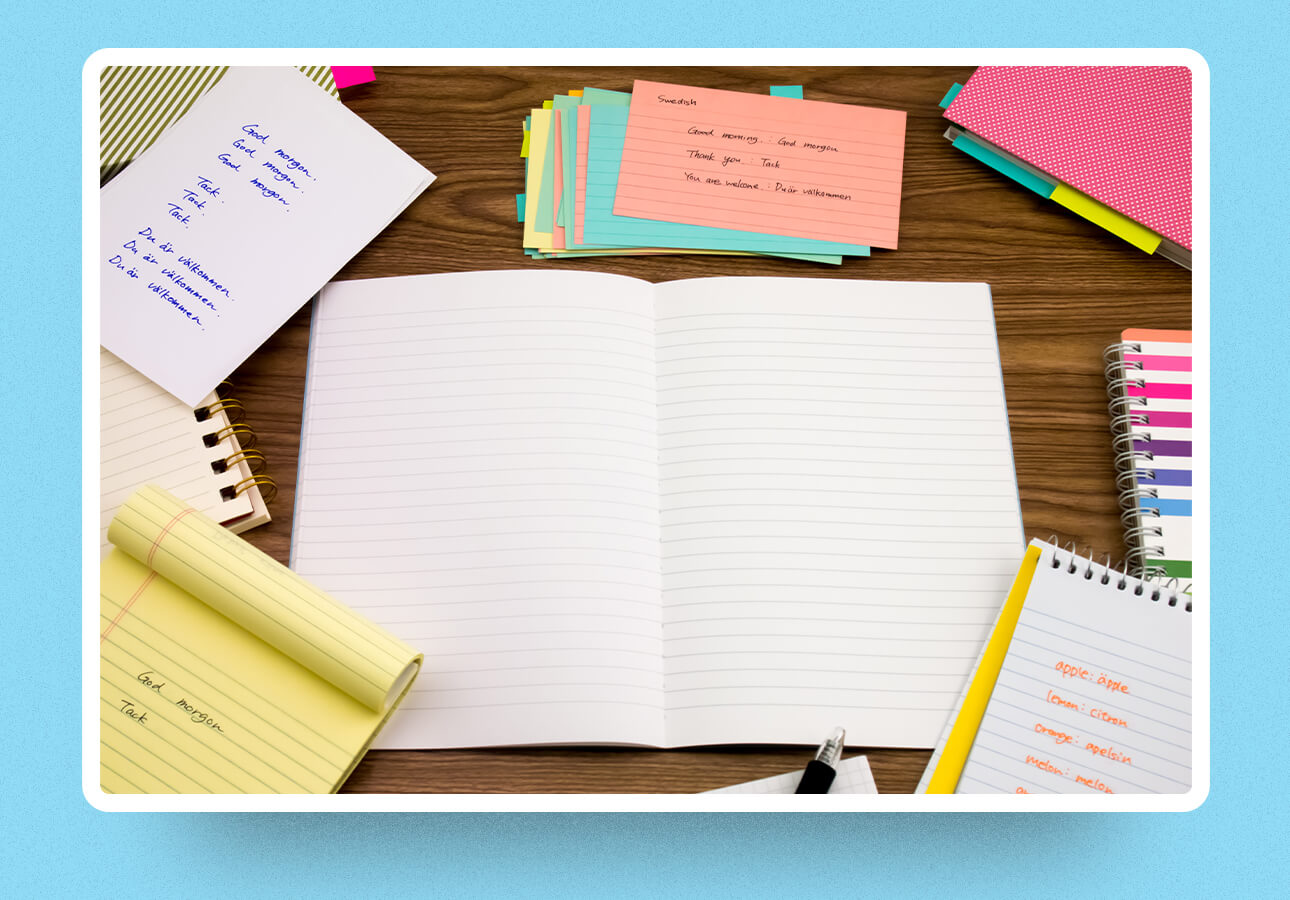 God morgon.
God morgon.
God morgon.
Tack.
Tack.
Tack.
Du är välkommen.
Du är välkommen.
Du är välkommen.
Swedish
Good morning. : God morgon
Thank you. : Tack
You are welcome. : Du är välkommen
God morgon
Tack
apple: äpple
lemon: citron
orange: apelsin
melon: melon